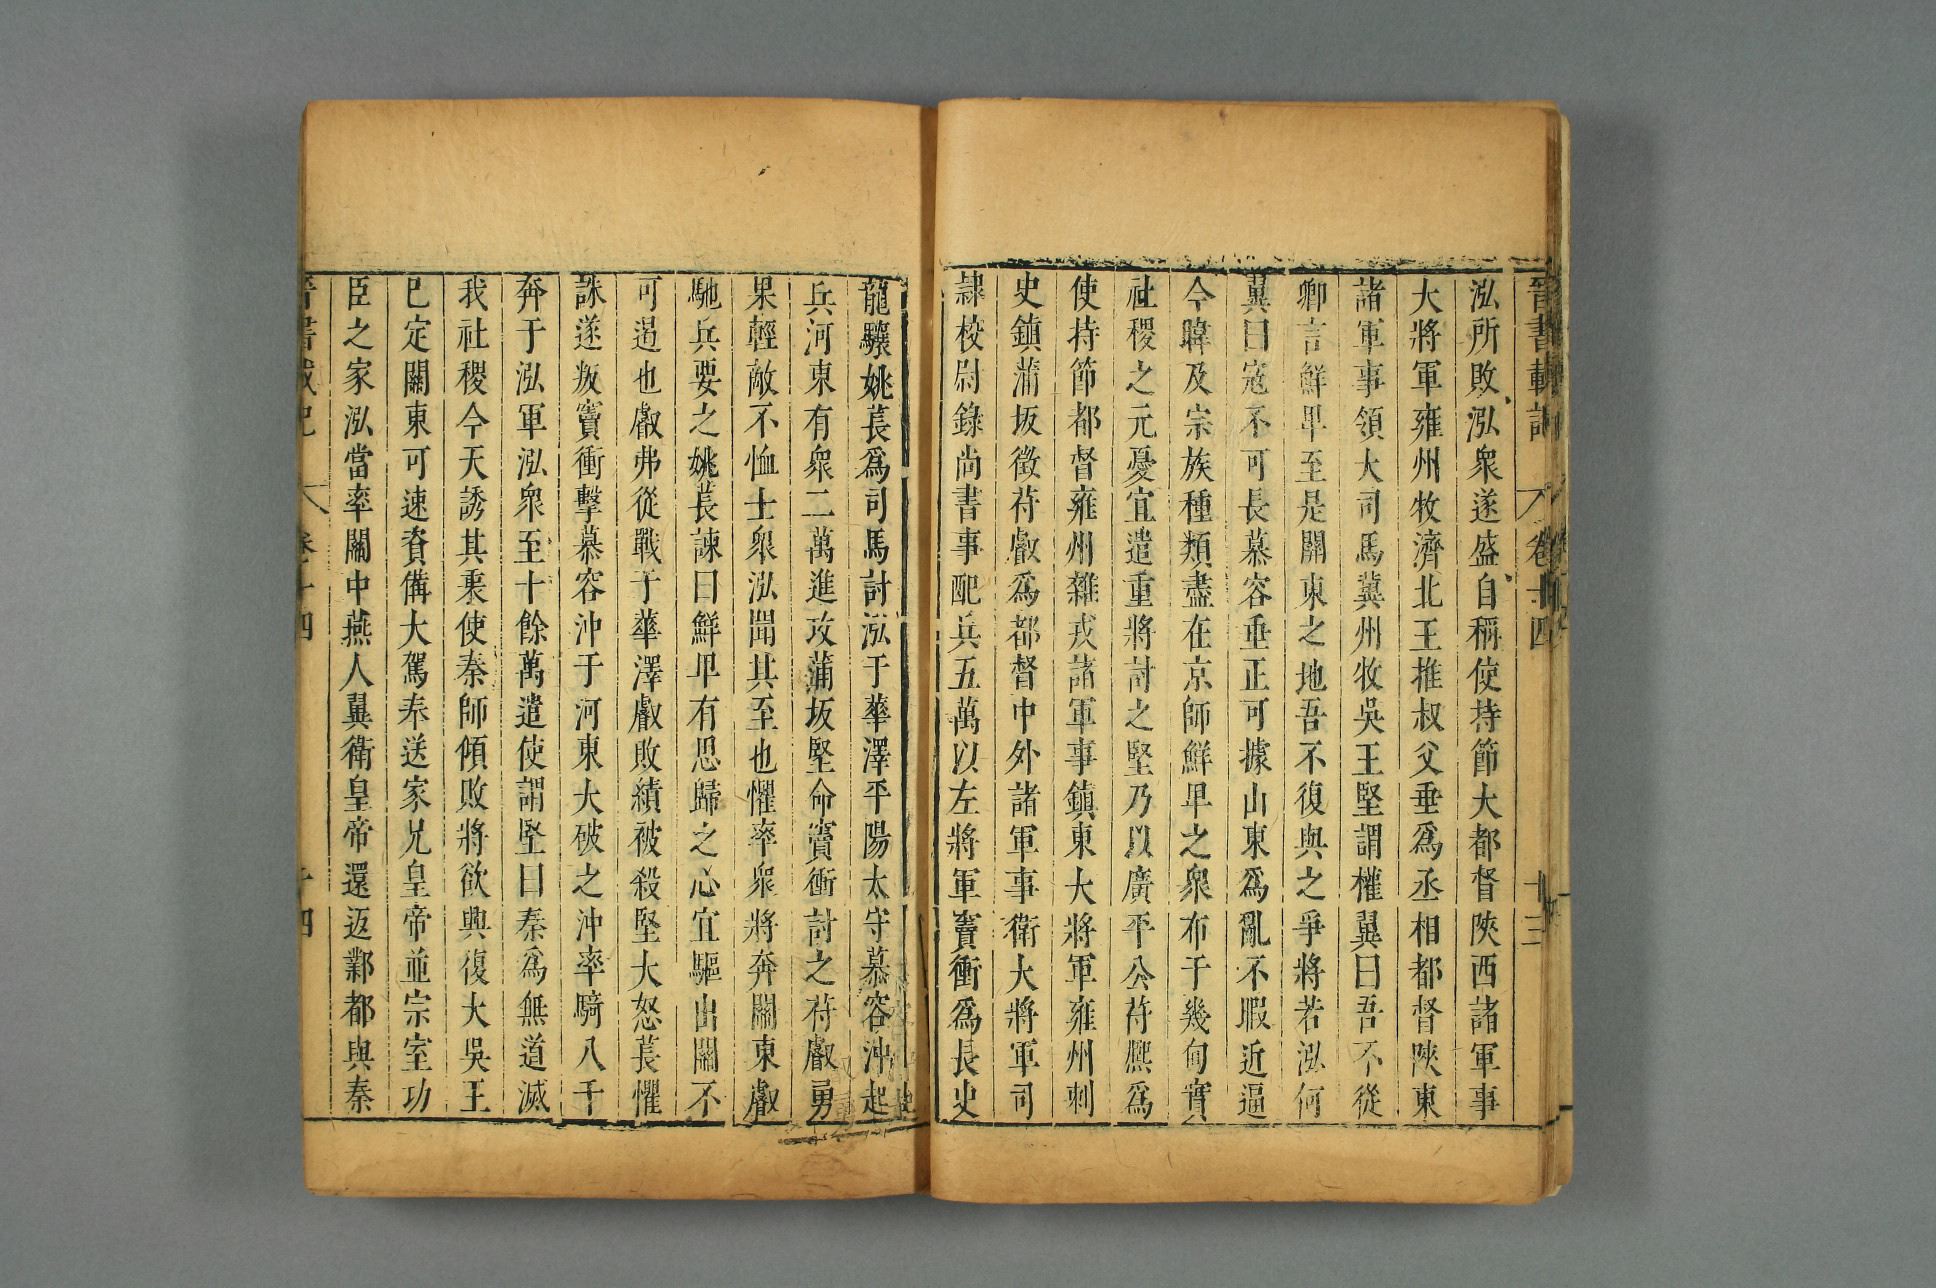 晉書載記 卷十四 十三
泓所敗泓衆遂盛自稱使持節大都督陝西諸軍事
大將軍雍州牧濟北王推叔父垂爲丞相都督陝東
諸軍事領大司馬冀州牧吳王堅謂權翼曰吾不從
卿言鮮卑至是關東之地吾不復與之爭將若泓何
翼曰寇不可長慕容垂正可據山東爲亂不暇近逼
今暐及宗族種類盡在京師鮮卑之衆布于畿甸實
社稷之元憂宜遣重將討之堅乃以廣平公苻熈爲
使持節都督雍州雜戎諸軍事鎮東大將軍雍州刺
史鎮蒲坂徵苻叡爲都督中外諸軍事衛大將軍司
隷校尉錄尚書事配兵五萬以左將軍竇衝爲長史
龍驤姚萇爲司馬討泓于華澤平陽太守慕容沖起
兵河東有衆二萬進攻蒲坂堅命竇衝討之苻叡勇
果輕敵不恤士衆泓聞其至也懼率衆將奔關東叡
馳兵要之姚萇諫曰鮮卑有思歸之心宜驅出關不
可遏也叡弗從戰于華澤叡敗績被殺堅大怒萇懼
誅遂叛竇衝擊慕容沖于河東大破之沖率騎八千
奔于泓軍泓衆至十餘萬遣使謂堅曰秦爲無道滅
我社稷今天誘其衷使秦師傾敗將欲興復大吳王
已定關東可速資備大駕奉送家兄皇帝並宗室功
臣之家泓當率關中燕人翼衛皇帝還返鄴都與秦
晉書載記 卷十四 十四